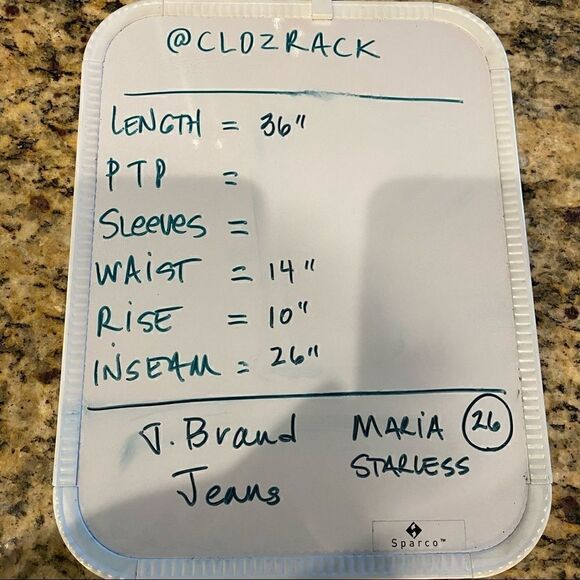 @CLOZRACK
LENGTH = 36"
PTP =
SLEEVES =
WAIST = 14"
RISE = 10"
INSEAM = 26"
J. Brand Jeans
MARIA STARLESS
26
Sparco™